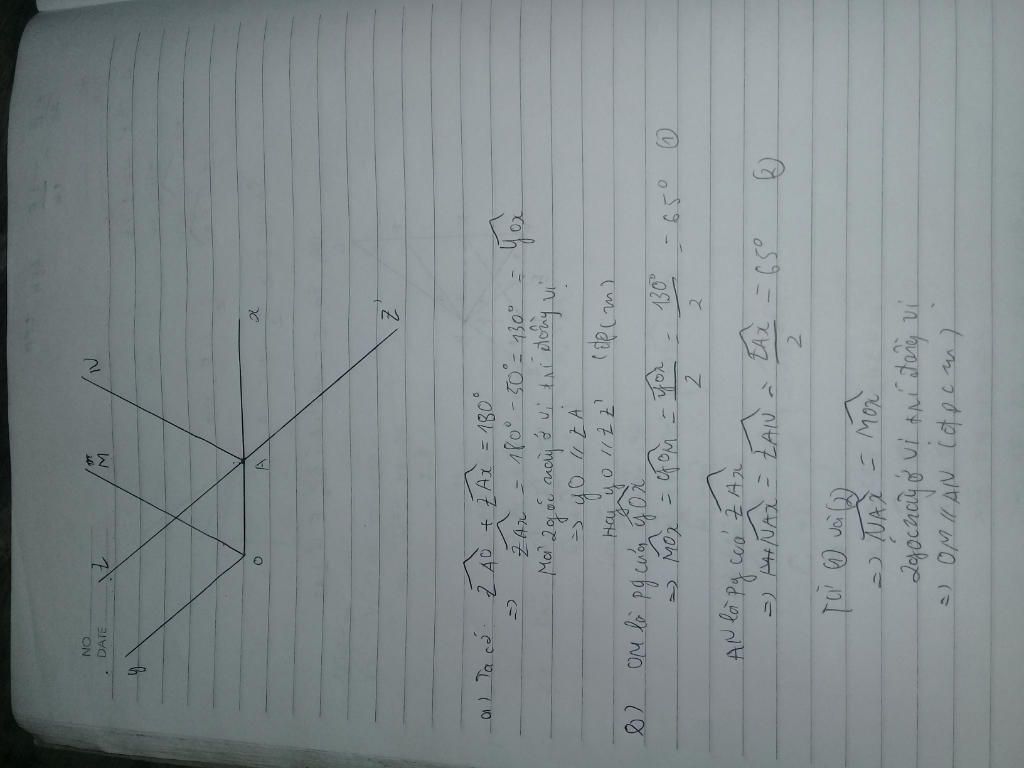 NO.
DATE
y
z
M
N
O
A
x
z'
a) Ta có: zAO + zAx = 180°
=> zAx = 180° - 50° = 130° = yOx
Mà 2 góc này ở vị trí đồng vị
=> yO // zA
Hay yO // zz' (đpcm)
b) OM là pg của yOx
=> MOx = yOM = yOx/2 = 130°/2 = 65° (1)
AN là pg của zAx
=> NAx = zAN = zAx/2 = 65° (2)
Từ (1) và (2)
=> NAx = MOx
2 góc này ở vị trí đồng vị
=> OM // AN (đpcm)